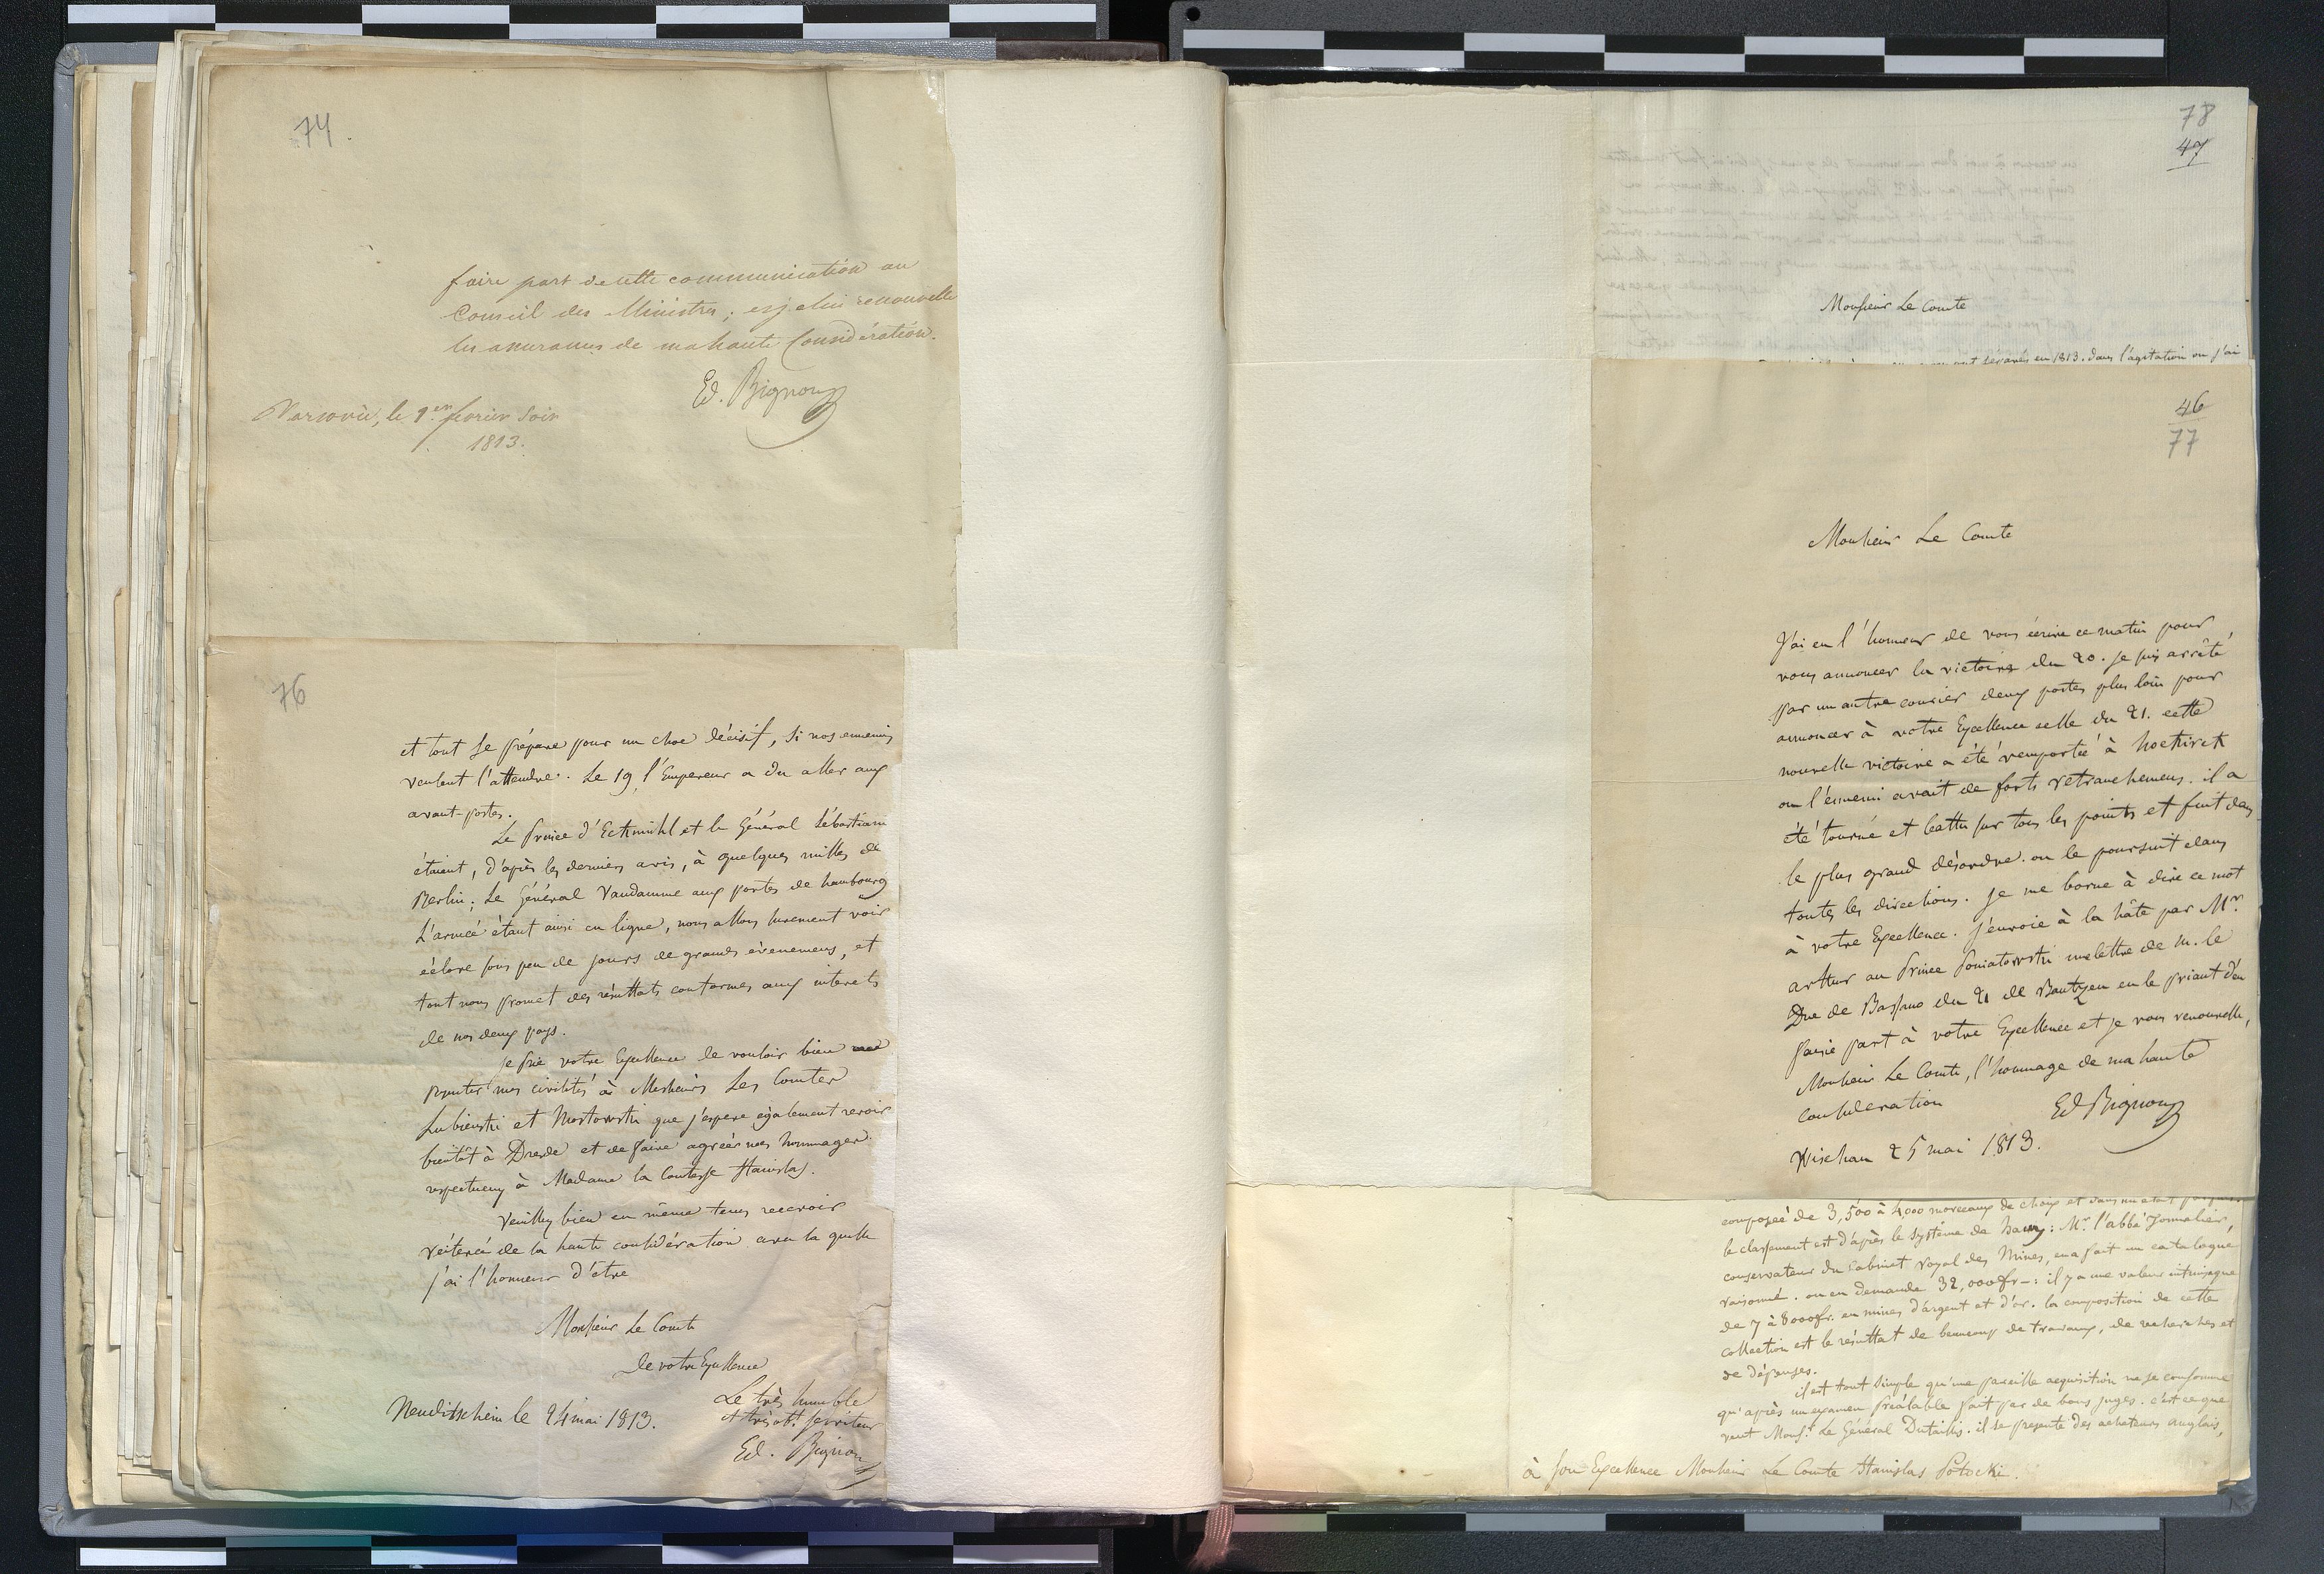 74.
faire part de cette communication au
Conseil des Ministres; et je lui renouvelle
les assurances de ma haute Considération.
Ed. Bignon
Varsovie, le 1er fevrier soir
1813.
76
et tout se prépare pour un choc décisif, si nos ennemis
veulent l'attendre. Le 19, l'Empereur a du aller aux
avant-postes.
Le Prince d'Eckmühl et le Général Sébastiani
étaient, d'après les derniers avis, à quelques milles de
Berlin; Le Général Vandamme aux portes de hambourg
L'armée étant ainsi en ligne, nous allons surement voir
éclore sous peu de jours de grands évenemens, et
tout nous promet des résultats conformes aux interets
de nos deux pays.
je prie votre Excellence de vouloir bien
presenter mes civilités à Messieurs Les Comtes
Lubienski et Mostowski que j'espere également revoir
bientôt à Dresde et de faire agréer mes hommages
respectueux à Madame la Comtesse Stanislas.
Veuillez bien en même tems recevoir
réiterée de la haute considération avec la quelle
j'ai l'honneur d'être
Monsieur Le Comte
de votre Excellence
Le très humble
et très obt. serviteur
Ed. Bignon
Neuditschein le 24 mai 1813.
78
47
Monsieur Le Comte
séparés en 1813. dans l'agitation ou j'ai
46
77
Monsieur Le Comte
J'ai eu l'honneur de vous écrire ce matin pour
vous annoncer la victoire du 20. je suis arrêté
par un autre courier deux postes plus loin pour
annoncer à votre Excellence celle du 21. cette
nouvelle victoire a été remportée à hochkirch
ou l'ennemi avait de forts retranchemens. il a
été tourné et battu sur tous les points et fuit dans
le plus grand désordre. on le poursuit dans
toutes les directions. je me borne à dire ce mot
à votre Excellence. j'envoie à la hâte par Mr.
arthur au Prince Poniatowski une lettre de m. le
Duc de Bassano du 21 de Bautzen en le priant d'en
faire part à votre Excellence et je vous renouvelle,
Monsieur Le Comte, l'hommage de ma haute
consideration
Ed Bignon
Wischau 25 mai 1813.
composée de 3,500 à 4000 morceaux de choix et dans un etat
le classement est d'après le système de hauy: Mr. l'abbé
conservateur du Cabinet royal des Mines, en a fait un catalogue
raisonné. on en demande 32,000 fr-: il y a une valeur intrinseque
de 7 à 8000 fr. en mines d'argent et d'or. la composition de cette
collection est le résultat de beaucoup de travaux, de recherches et
de dépenses.
il est tout simple qu'une pareille acquisition ne se consomme
qu'après un examen préalable fait par de bons juges. c'est ce que
veut Monsr. Le Général Dutaillis. il se presente des acheteurs anglais,
à son Excellence Monsieur Le Comte Stanislas Potocki.